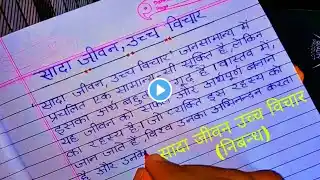 सादा जीवन, उच्च विचार
सादा जीवन, उच्च विचार जनसामान्य में
प्रचलित एक सामान्य सी सूक्ति है लेकिन
इसका अर्थ बहुत गूढ़ है। वास्तव में,
यह जीवन को सफल और अर्थपूर्ण बनाने
का रहस्य है। जो व्यक्ति इस रहस्य को
जान जाते हैं विश्व उनका अभिनन्दन करता
है और उनके
सादा जीवन उच्च विचार
(निबन्ध)